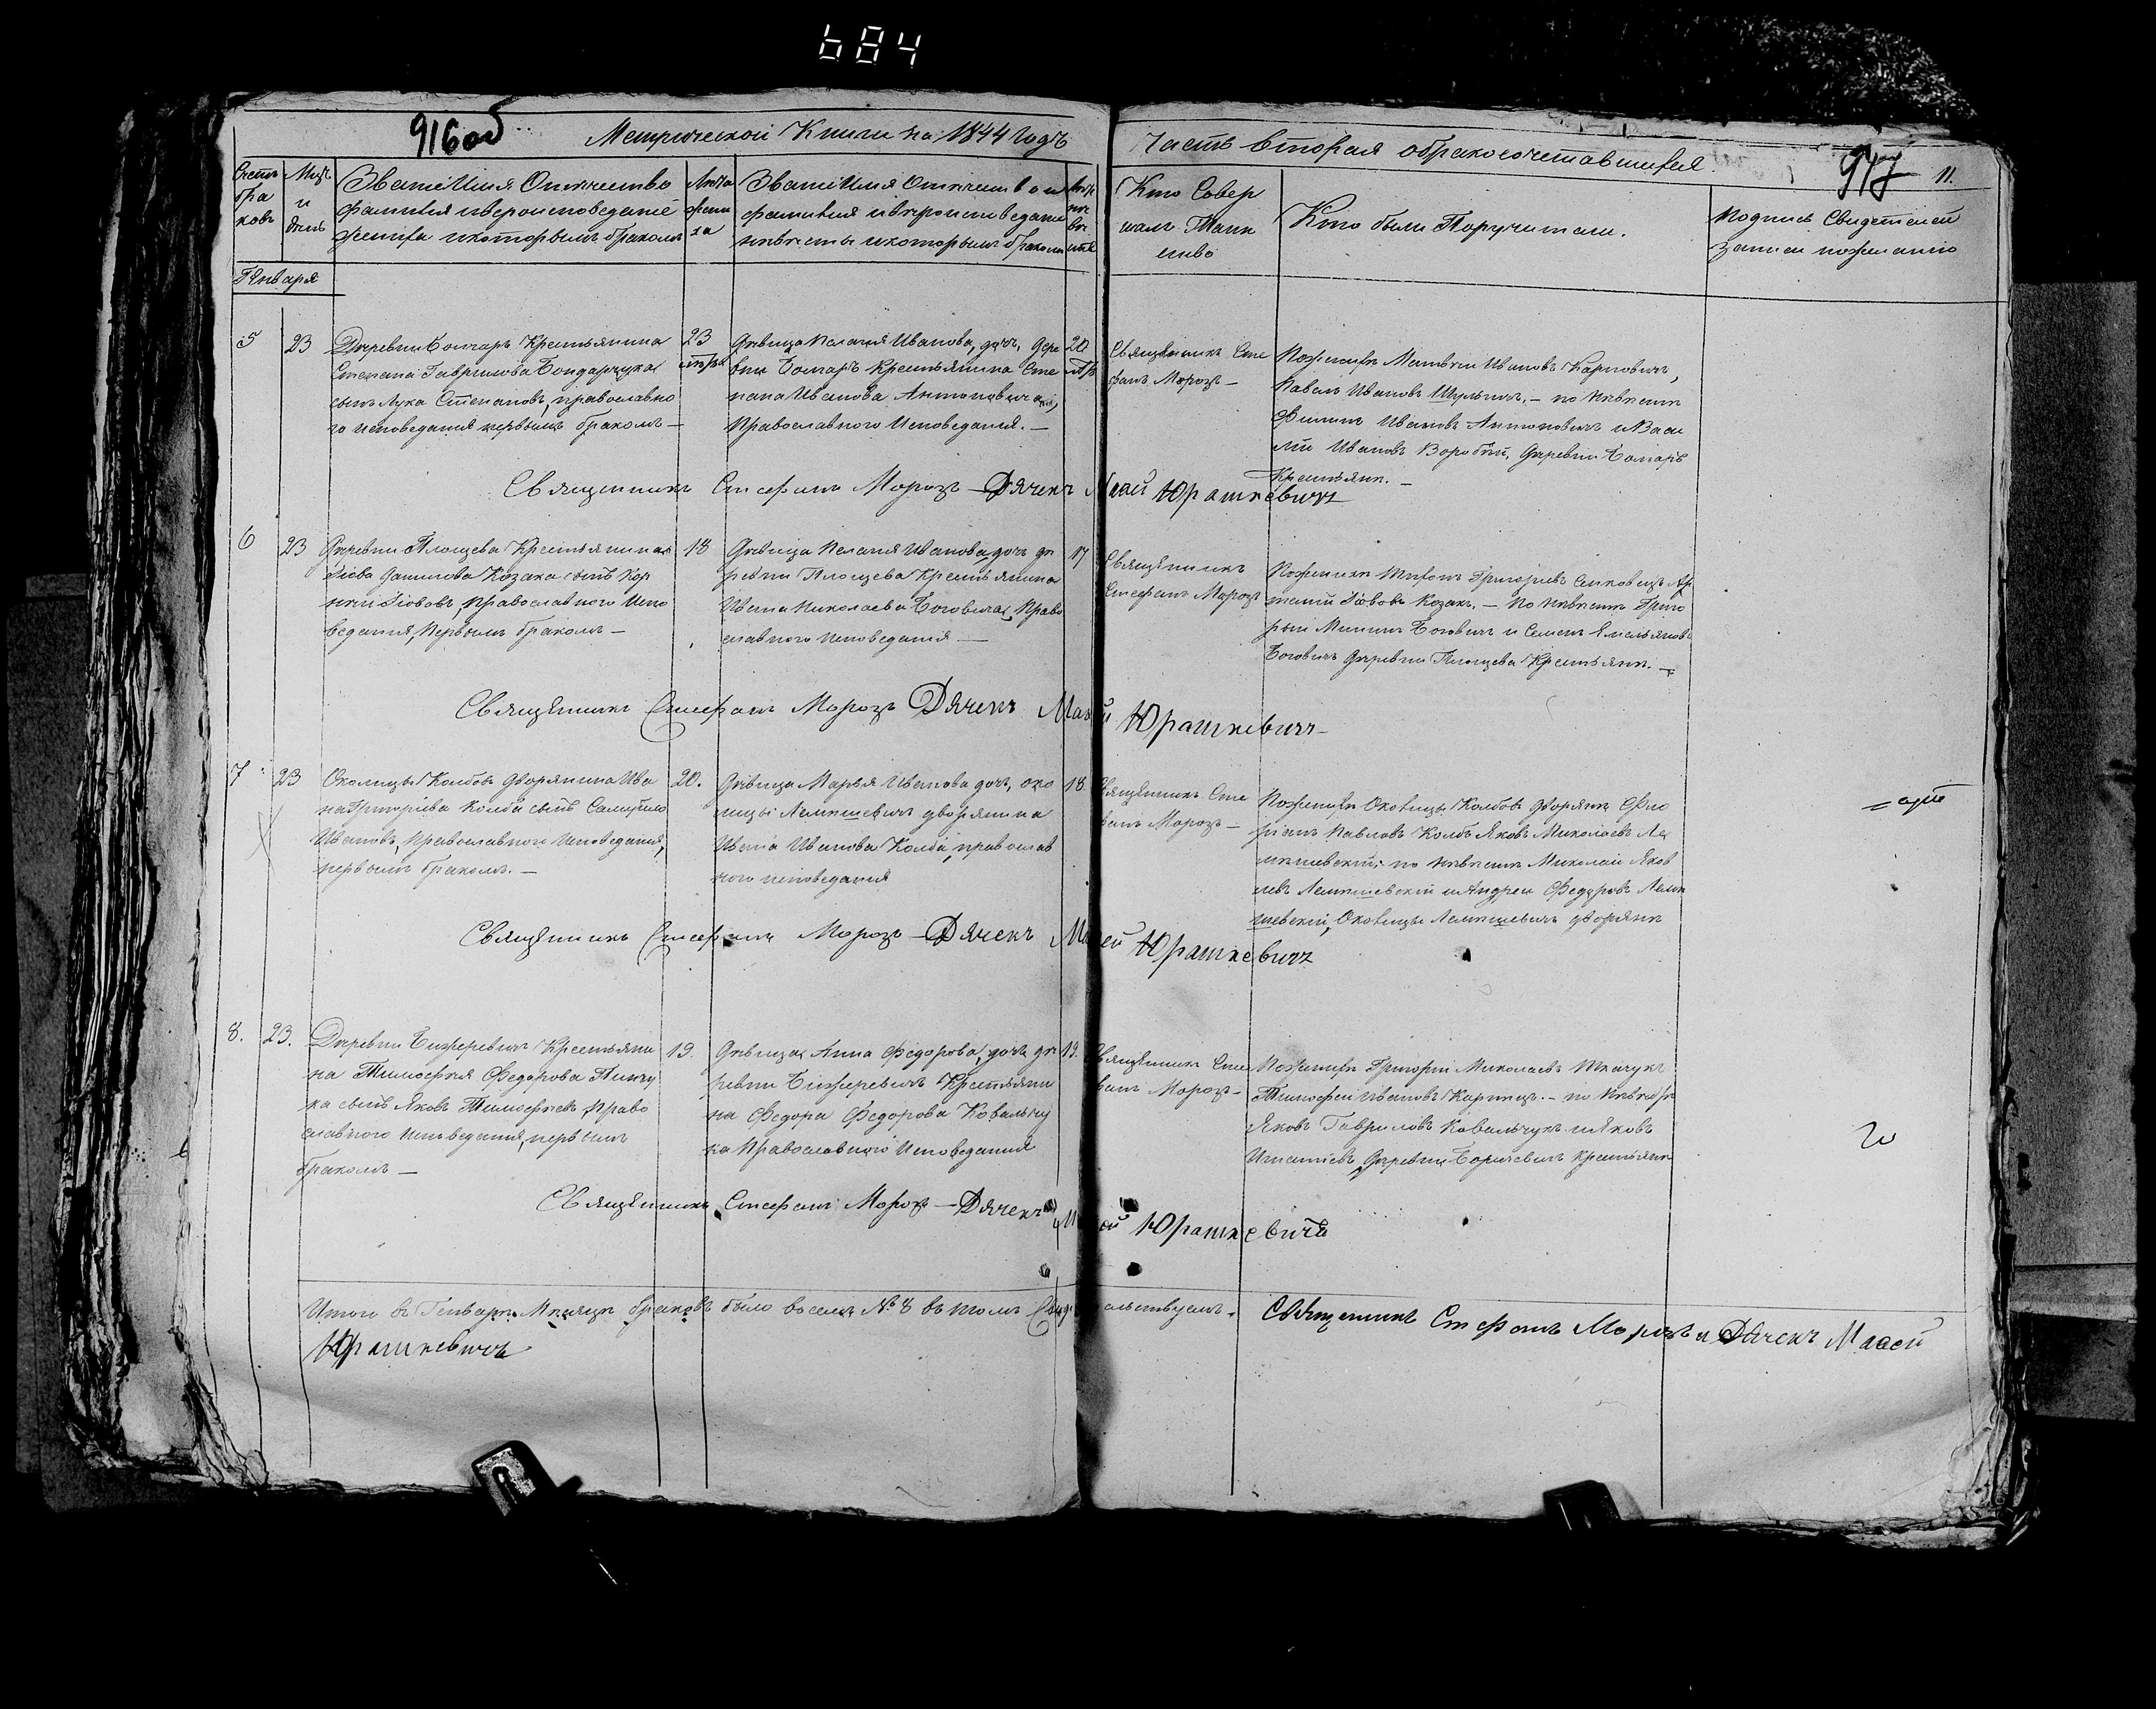 684
916об
Метрической Книги на 1844 Годъ
Часть вторая о бракосочетавшихся
917
11.
Счетъ бра ковъ
Мцъ и день
Званіе Имя Отчество
фамилія и вероисповеданіе
жениха и которымъ бракомъ
Лета жени ха
Званіе Имя Отчество и
фамилія и вероисповедание
невесты и которымъ бракомъ
Кто Совер
шалъ Таин
ство
Кто были Поручители.
Подпись Свидетелей
записи по желанію
Генваря
5
23
Деревни Бомаръ Крестьянина
Степана Гаврилова Бондарчука
сынъ Лука Степановъ, православно
го исповедания первымъ бракомъ —
23
Девица Пелагия Иванова, дочь, дере
вни Бомаръ Крестьянина Сте
пана Иванова Антоновича
Православного Исповедания. —
20
Священникъ Сте
фанъ Морозъ —
По женихе Матвей Ивановъ Карповичъ,
Павелъ Ивановъ Шульгичъ, — по невесте
Филипъ Ивановъ Антоновичъ и Васи
лий Ивановъ Воробей, деревни Бомаръ
Крестьяне. —
Священникъ Стефанъ Морозъ — Дячекъ Юрашкевичъ
6
23
Деревни Площева Крестьянина
Іова Данилова Козака сынъ Кор
ней Іововъ, православного Испо
ведания, Первымъ бракомъ —
18
Девица Пелагия Иванова, дочь де
ревни Площева Крестьянина
Ивана Николаева Боговича, Право
славного исповедания —
17
Священникъ
Стефанъ Морозъ
По женихе Григориевъ
Іововъ Козакъ. — По невесте Григо
рый Мининъ Боговичъ и Семенъ Емельяновъ
Боговичъ деревни Площева Крестьяне. —
Священникъ Стефанъ Морозъ Дячекъ Юрашкевичъ —
7
23
Околицы Колбовъ дворянина Ива
на Григориева Колба сынъ
Ивановъ, Православного Исповедания,
первымъ бракомъ. —
20.
Девица Марья Иванова дочь, око
лицы Лемешевичъ дворянина
Ивана Иванова Колба, православ
ного исповедания
18
Священникъ Сте
фанъ Морозъ —
По женихе Околицы Колбовъ дворяне Фло
ріанъ Павловъ Колбъ Яковъ Миколаевъ Ле
мешевский; по невесте Миколай Яков
левъ Лемешевскій и Андрей Федоровъ Леме
шевский, Околицы Лемешевичъ дворяне
Священникъ Стефанъ Морозъ — Дячекъ Юрашкевичъ
8.
23.
Деревни Бижеревичъ Крестьяни
на Тимофея Федорова Пинчу
ка сынъ Яковъ Тимофеевъ, Право
славного Исповедания, первымъ
бракомъ —
19.
Девица Анна Федорова, дочь де
ревни Бижеревичъ Крестьяни
на Федора Федорова Ковальчу
ка Православного Исповедания
19.
Священникъ Сте
фанъ Морозъ —
По женихе Григорій Миколаевъ Ткачукъ
Тимофей Ивановъ — по невесте
Яковъ Гавриловъ Ковальчукъ и Яковъ
Игнатіевъ, деревни Крестьяне
Священникъ Стефанъ Морозъ — Дячекъ Юрашкевичъ
Итого въ Генваре Месяце браковъ было восемь № 8 въ томъ Свидетельствуемъ. Священникъ Стефанъ Морозъ и Дячекъ
Юрашкевичъ